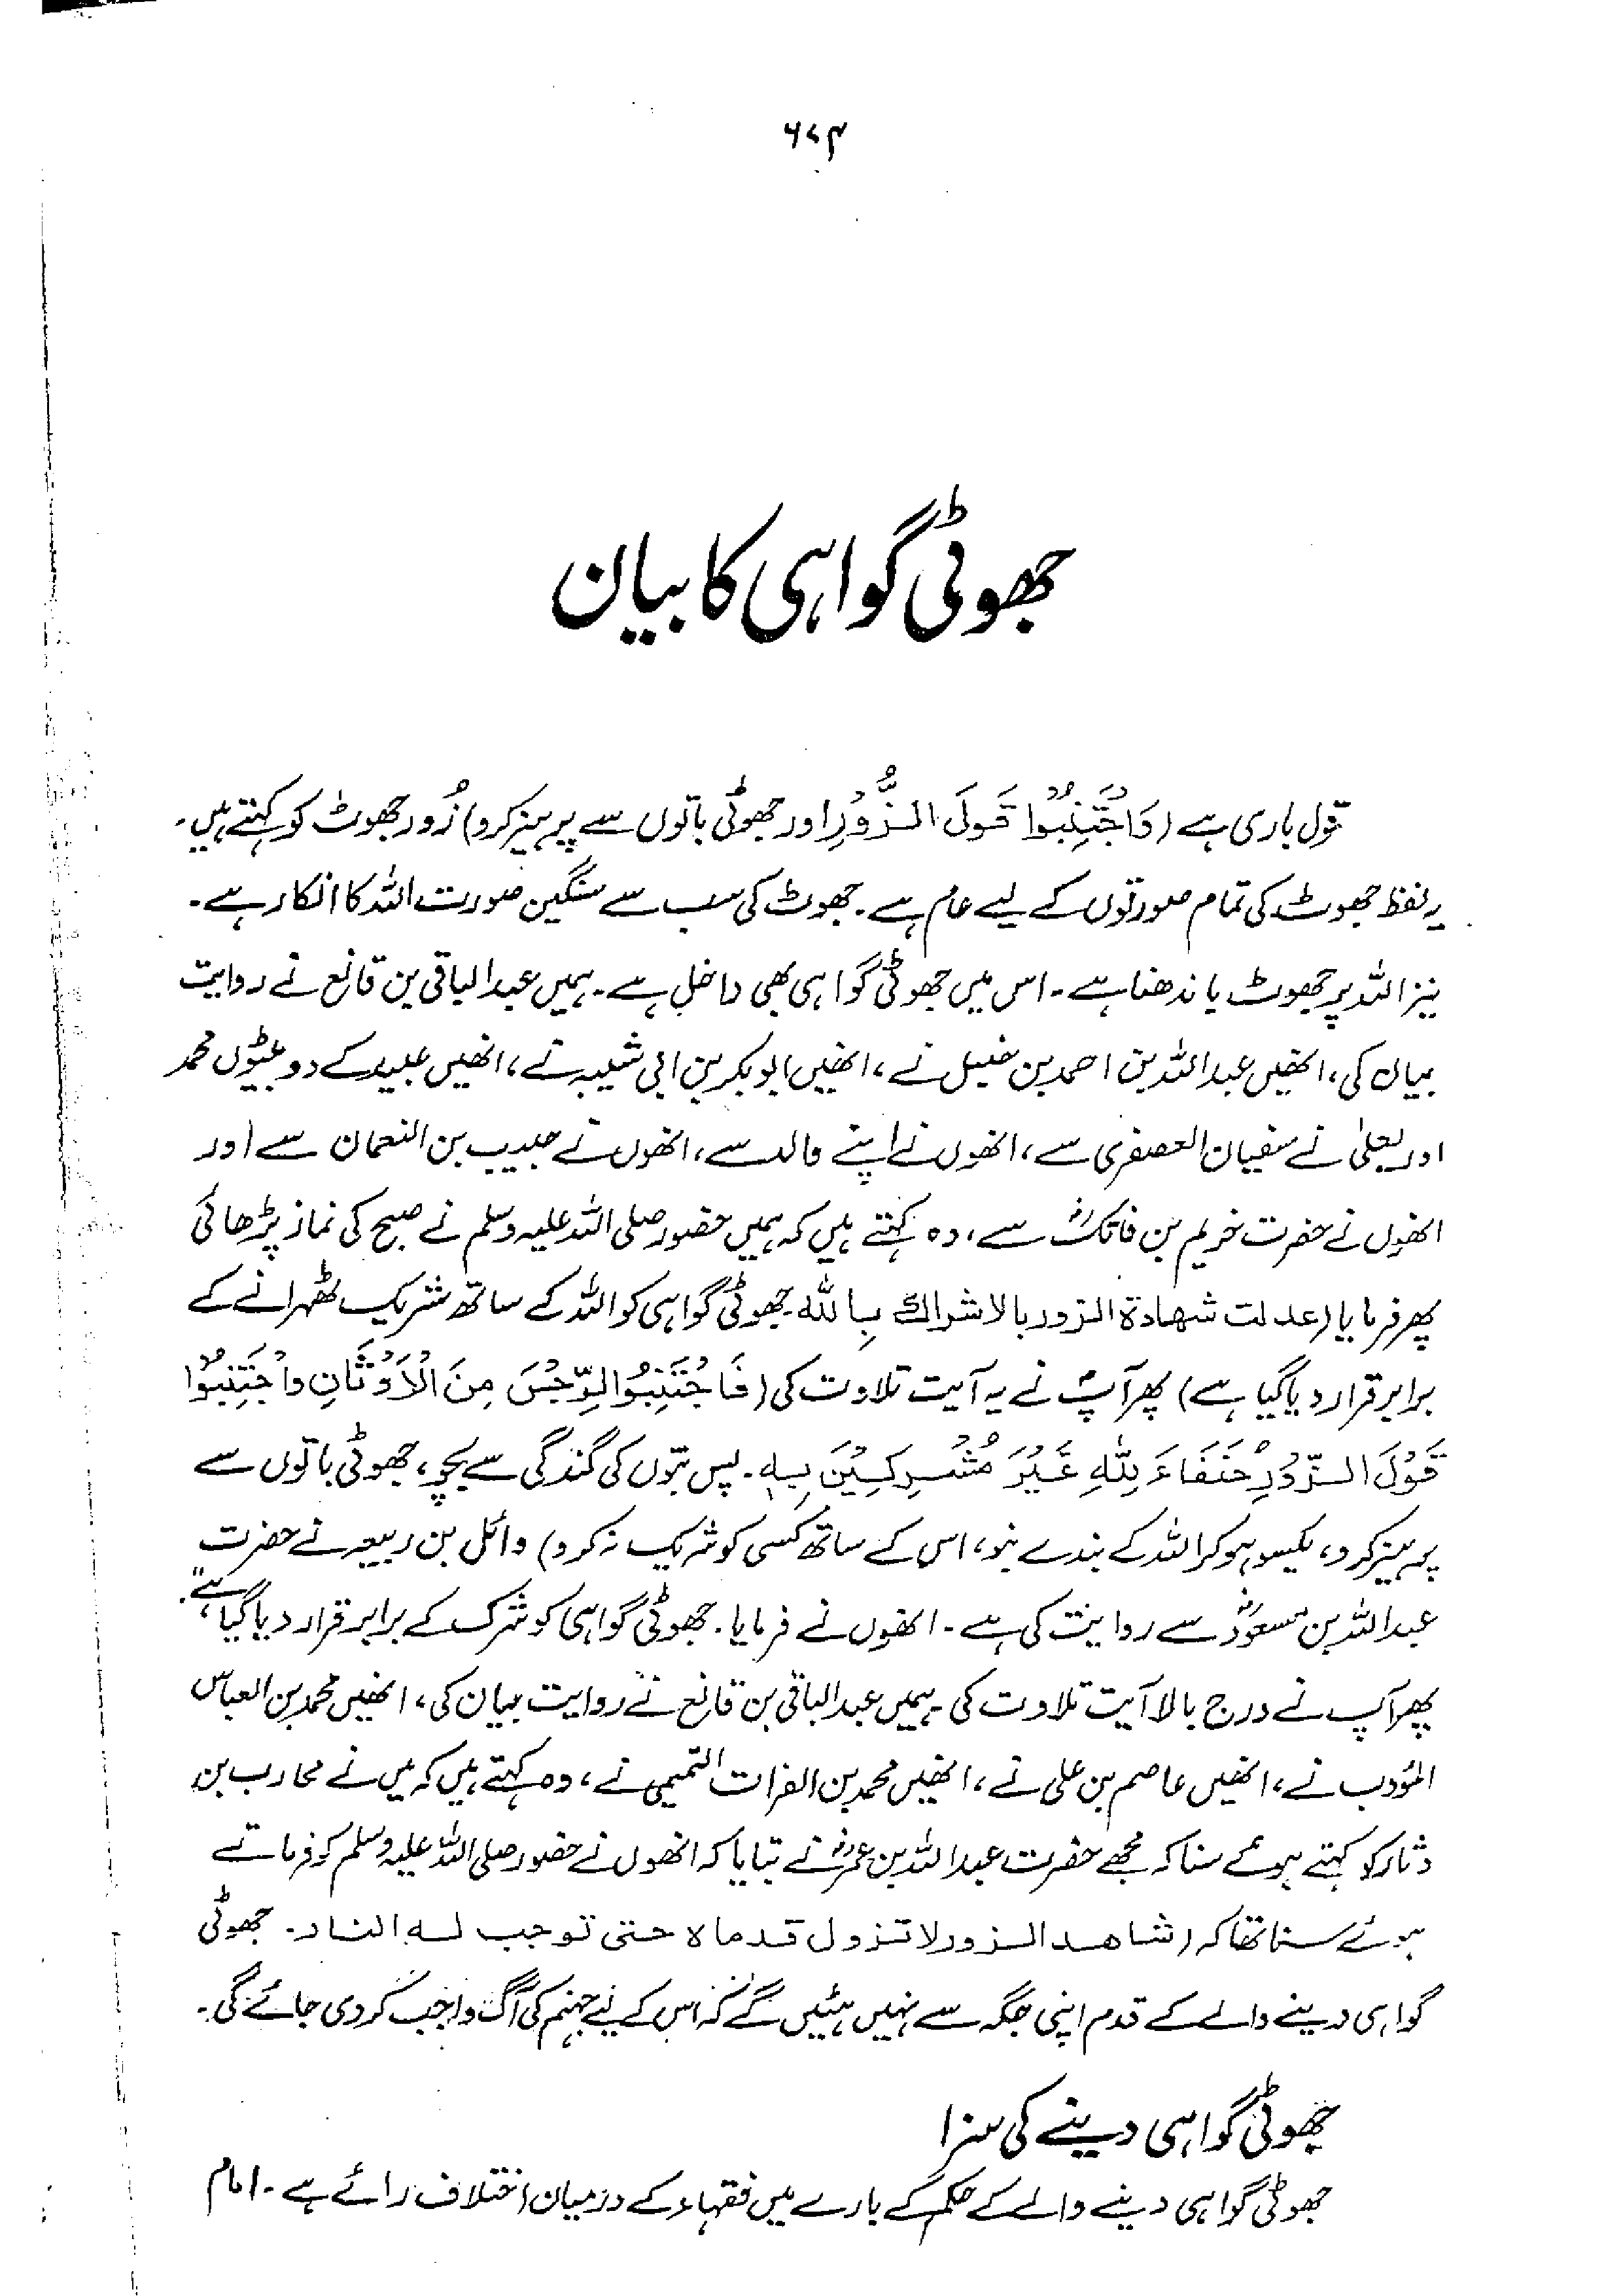 ۶۷۴
جھوٹی گواہی کا بیان
قول باری ہے (وَاجْتَنِبُوْا قَوْلَ الزُّوْرِ اور جھوٹی باتوں سے پرہیز کرو) زُور جھوٹ کو کہتے ہیں۔
یہ لفظ جھوٹ کی تمام صورتوں کے لیے عام ہے۔ جھوٹ کی سب سے سنگین صورت اللہ کا انکار ہے۔
نیز اللہ پر جھوٹ باندھنا ہے۔ اس میں جھوٹی گواہی بھی داخل ہے۔ ہمیں عبدالباقی بن قانع نے روایت
بیان کی، انھیں عبداللہ بن احمد بن حنبل نے، انھیں ابوبکر بن ابی شیبہ نے، انھیں عبید کے دو بیٹوں محمد
اور یعلیٰ نے سفیان العصفری سے، انھوں نے اپنے والد سے، انھوں نے حبیب بن النعمان سے اور
انھوں نے حضرت خریم بن فاتکؓ سے، وہ کہتے ہیں کہ ہمیں حضور صلی اللہ علیہ وسلم نے صبح کی نماز پڑھائی
پھر فرمایا (عدلت شھادۃ الزور بالاشراک باللہ۔ جھوٹی گواہی کو اللہ کے ساتھ شریک ٹھہرانے کے
برابر قرار دیا گیا ہے) پھر آپؐ نے یہ آیت تلاوت کی (فَاجْتَنِبُوا الرِّجْسَ مِنَ الْاَوْثَانِ وَاجْتَنِبُوْا
قَوْلَ الزُّوْرِ حُنَفَاءَ لِلّٰہِ غَیْرَ مُشْرِکِیْنَ بِہٖ۔ پس بتوں کی گندگی سے بچو، جھوٹی باتوں سے
پرہیز کرو، یکسو ہو کر اللہ کے بندے بنو، اس کے ساتھ کسی کو شریک نہ کرو) وائل بن ربیعہ نے حضرت
عبداللہ بن مسعودؓ سے روایت کی ہے۔ انھوں نے فرمایا۔ جھوٹی گواہی کو شرک کے برابر قرار دیا گیا ہے"،
پھر آپ نے درج بالا آیت تلاوت کی۔ ہمیں عبدالباقی بن قانع نے روایت بیان کی، انھیں محمد بن العباس
المؤدب نے، انھیں عاصم بن علی نے، انھیں محمد بن الفرات التمیمی نے، وہ کہتے ہیں کہ میں نے محارب بن
دثار کو کہتے ہوئے سنا کہ مجھے حضرت عبداللہ بن عمرؓ نے بتایا کہ انھوں نے حضور صلی اللہ علیہ وسلم کو فرماتے
ہوئے سنا تھا کہ (شاھد الزور لا تزول قدماہ حتی توجب لہ النار۔ جھوٹی
گواہی دینے والے کے قدم اپنی جگہ سے نہیں ہٹیں گے کہ اس کے لیے جہنم کی آگ واجب کر دی جائے گی۔
جھوٹی گواہی دینے کی سزا
جھوٹی گواہی دینے والے کے حکم کے بارے میں فقہاء کے درمیان اختلاف رائے ہے۔ امام